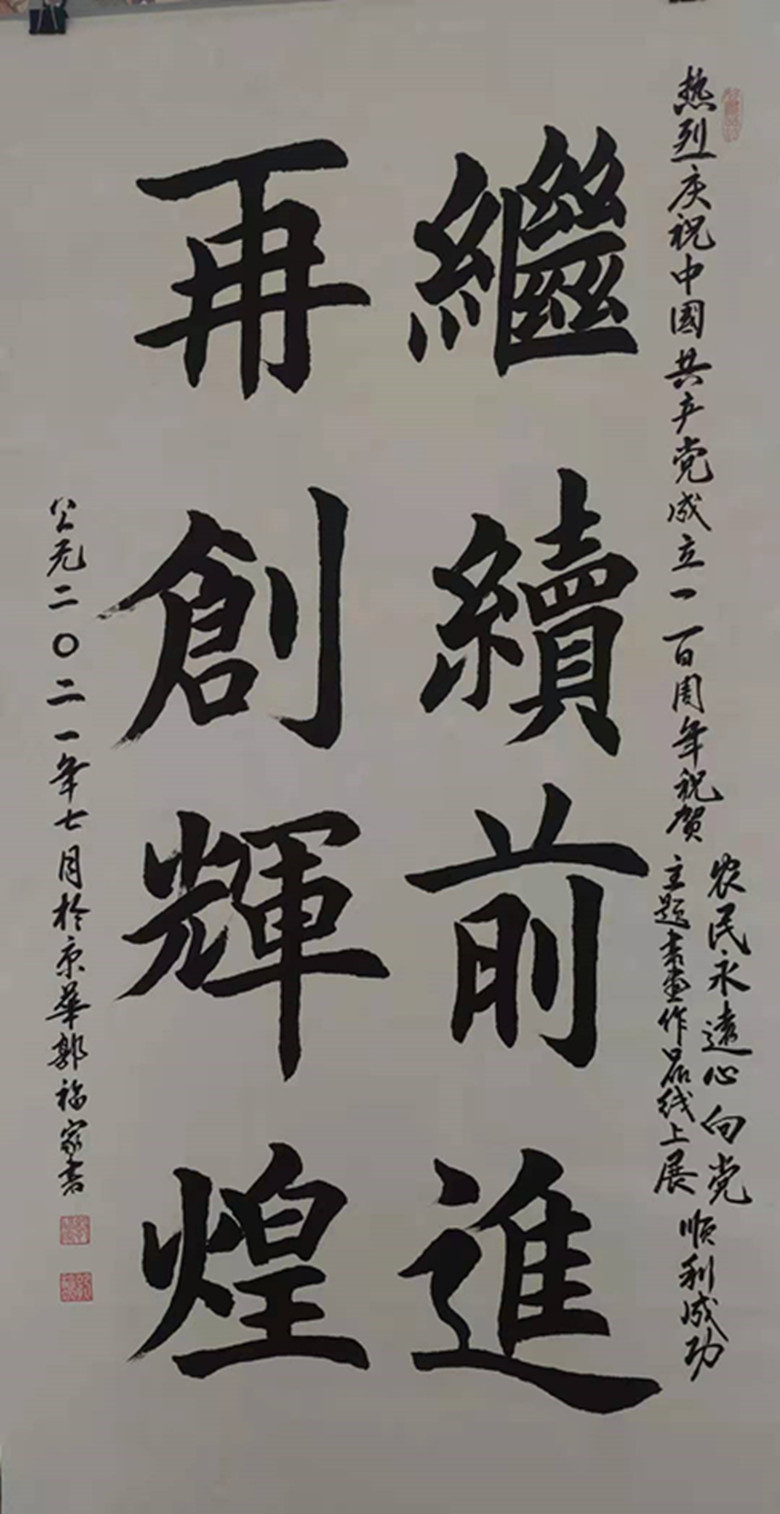 热烈庆祝中国共产党成立一百周年祝贺
农民永遠心向党
主题书画作品线上展
顺利成功
繼續前進
再創輝煌
公元二〇二一年七月於京華郭福家书